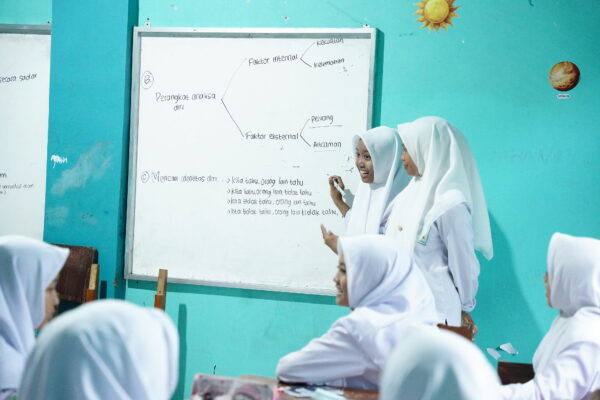 secara sadar
Faktor Internal
Kekuatan
Kelemahan
B.
Perangkat analisa
diri
Peluang
Faktor eksternal
Ancaman
C Mencari identitas diri
→ kita tahu, orang lain tahu
→ kita tahu, orang lain tidak tahu
→ kita tidak tahu, orang lain tahu
→ kita tidak tahu, orang lain tidak tahu